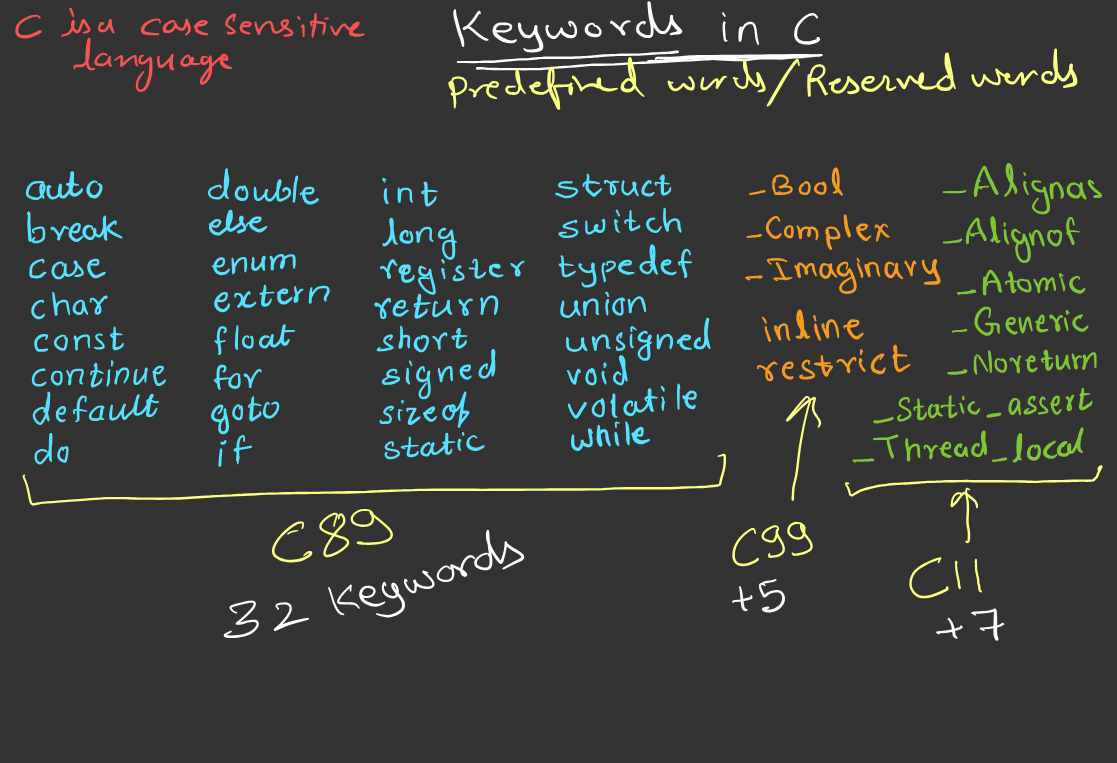 C is a case sensitive
language
Keywords in C
Predefined words/Reserved words
auto
break
case
char
const
continue
default
do
double
else
enum
extern
float
for
goto
if
int
long
register
return
short
signed
sizeof
static
struct
switch
typedef
union
unsigned
void
volatile
while
_Bool
_Complex
_Imaginary
inline
restrict
_Alignas
_Alignof
_Atomic
_Generic
_Noreturn
_Static_assert
_Thread_local
C89
32 Keywords
C99
+5
C11
+7